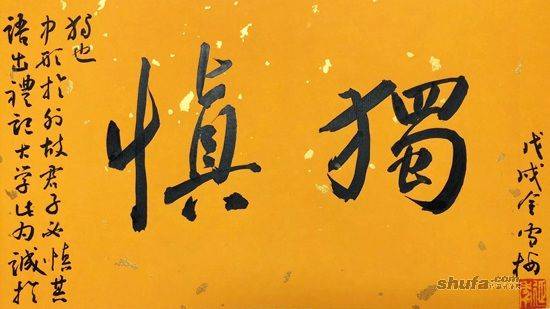 語出禮記大学此为誠於
中形於外故君子必慎其
独也
慎獨
戊戌金雪梅
shufa.com